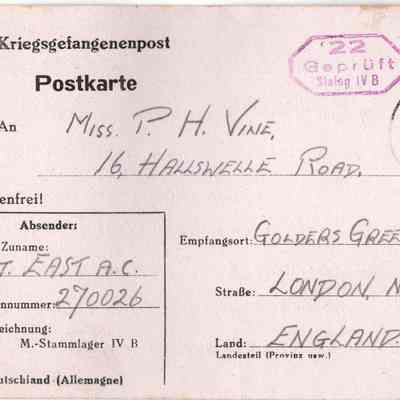 Kriegsgefangenenpost
22
Geprüft
Stalag IV B
Postkarte
An MISS. P. H. VINE,
16, HALLSWELLE ROAD.
enfrei!
Absender:
Zuname:
T. EAST A.C.
Empfangsort: GOLDERS GREE
nnummer: 270026
Straße: LONDON, N
eichnung:
M.-Stammlager IV B
Land: ENGLAND.
Landesteil (Provinz usw.)
utschland (Allemagne)